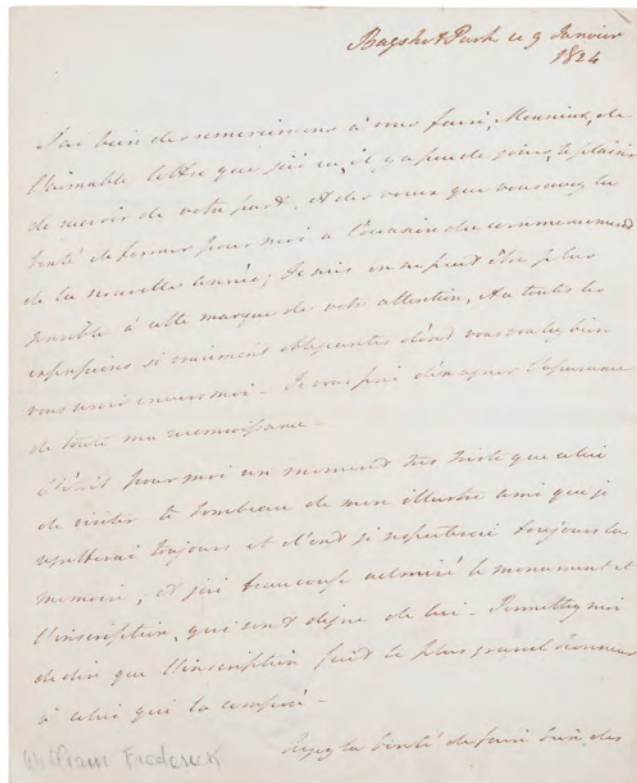 Bagshot Park ce 9 Janvier
1824
J'ai bien des remercimens à vous faire, Monsieur, de
l'aimable lettre que j'ai eu, il y a peu de jours, le plaisir
de recevoir de votre part, et des voeux que vous avez la
bonté de former pour moi a l'occasion du commencement
de la nouvelle année; Je suis on ne peut être plus
sensible à cette marque de votre attention, et a toutes les
expressions si vraiment obligeantes dont vous voulez bien
vous servir envers moi - Je vous prie d'en agréer l'assurance
de toute ma reconnoissance -
C'étoit pour moi un moment très triste que celui
de visiter le tombeau de mon illustre ami que je
regretterai toujours et dont je respecterai toujours la
memoire, et j'ai beaucoup admiré le monument et
l'inscription, qui sont digne de lui - Permettez moi
de dire que l'inscription fait le plus grand honneur
à celui qui la composé -
Ayez la bonté de faire bien des
William Frederick